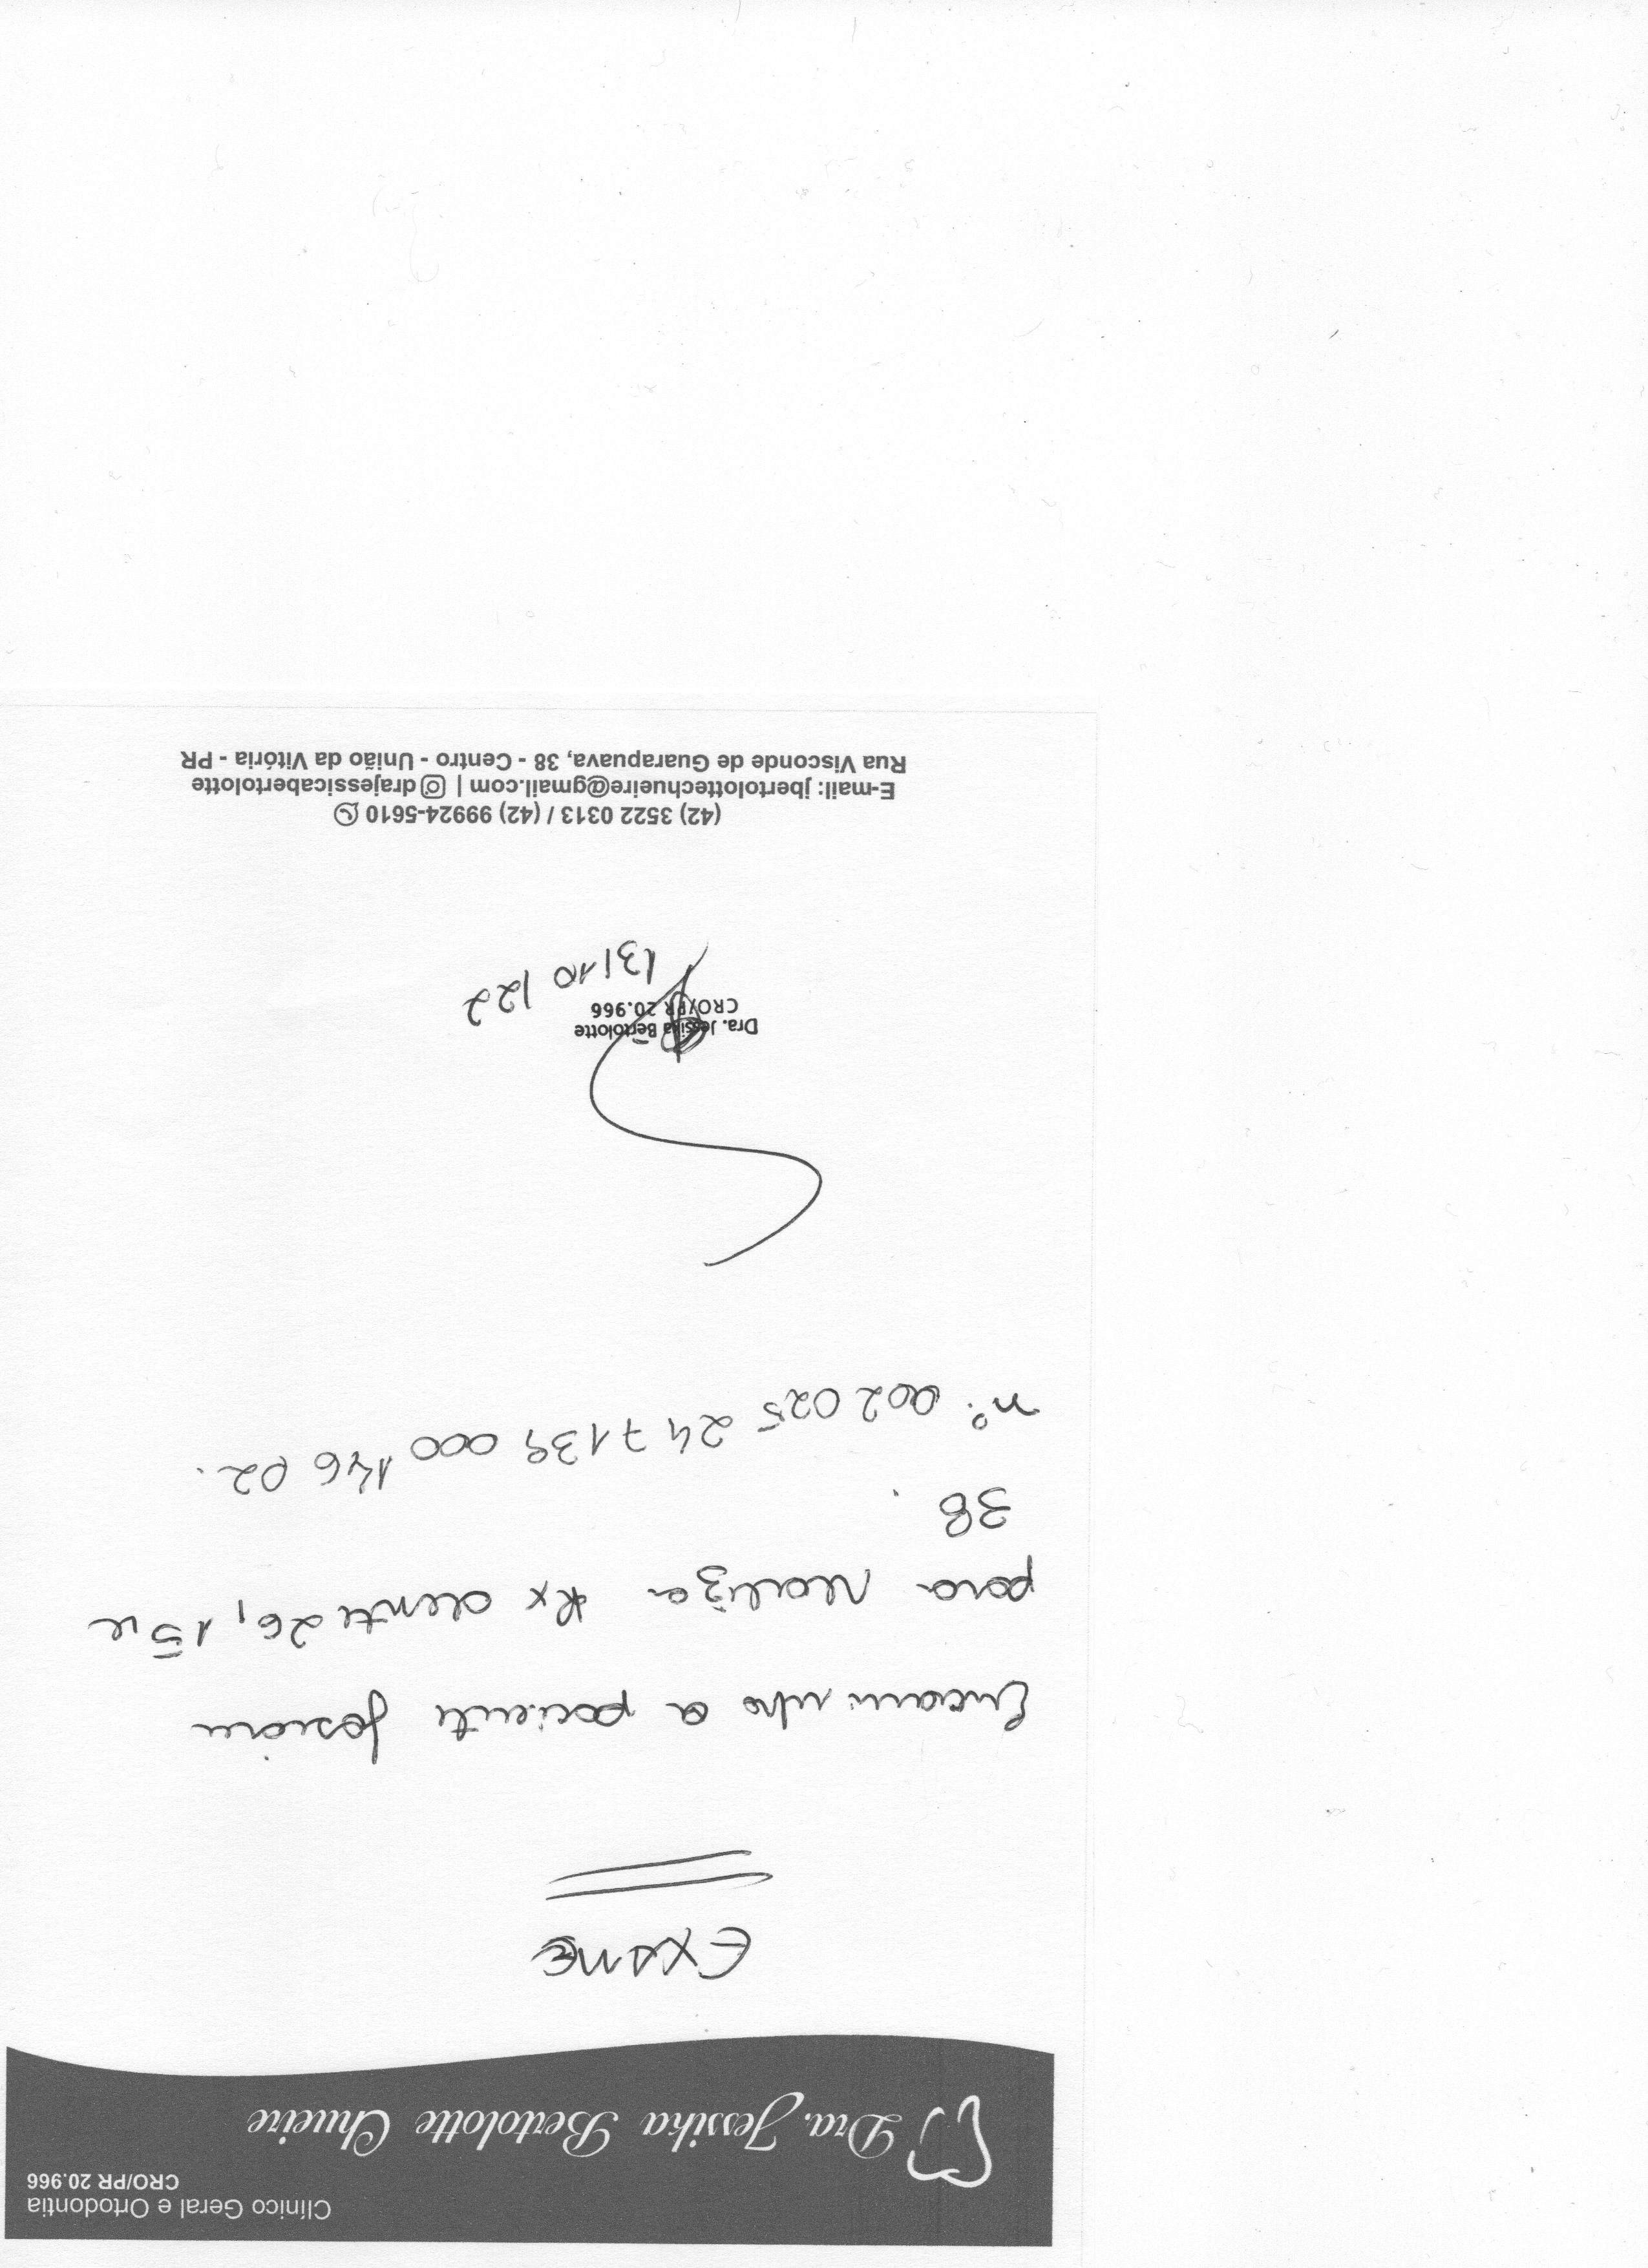 Clínico Geral e Ortodontia
CRO/PR 20.966
Dra. Jessika Bertolotte Chueire
EXAME
Encaminho a paciente Josiane
para realizar Rx dente 26, 15 e
38.
nº. 002 025 247139 000 146 02.
Dra. Jessika Bertolotte
CRO/PR 20.966
13/10/22
(42) 3522 0313 / (42) 99924-5610
E-mail: jbertolottechueire@gmail.com | drajessicabertolotte
Rua Visconde de Guarapuava, 38 - Centro - União da Vitória - PR